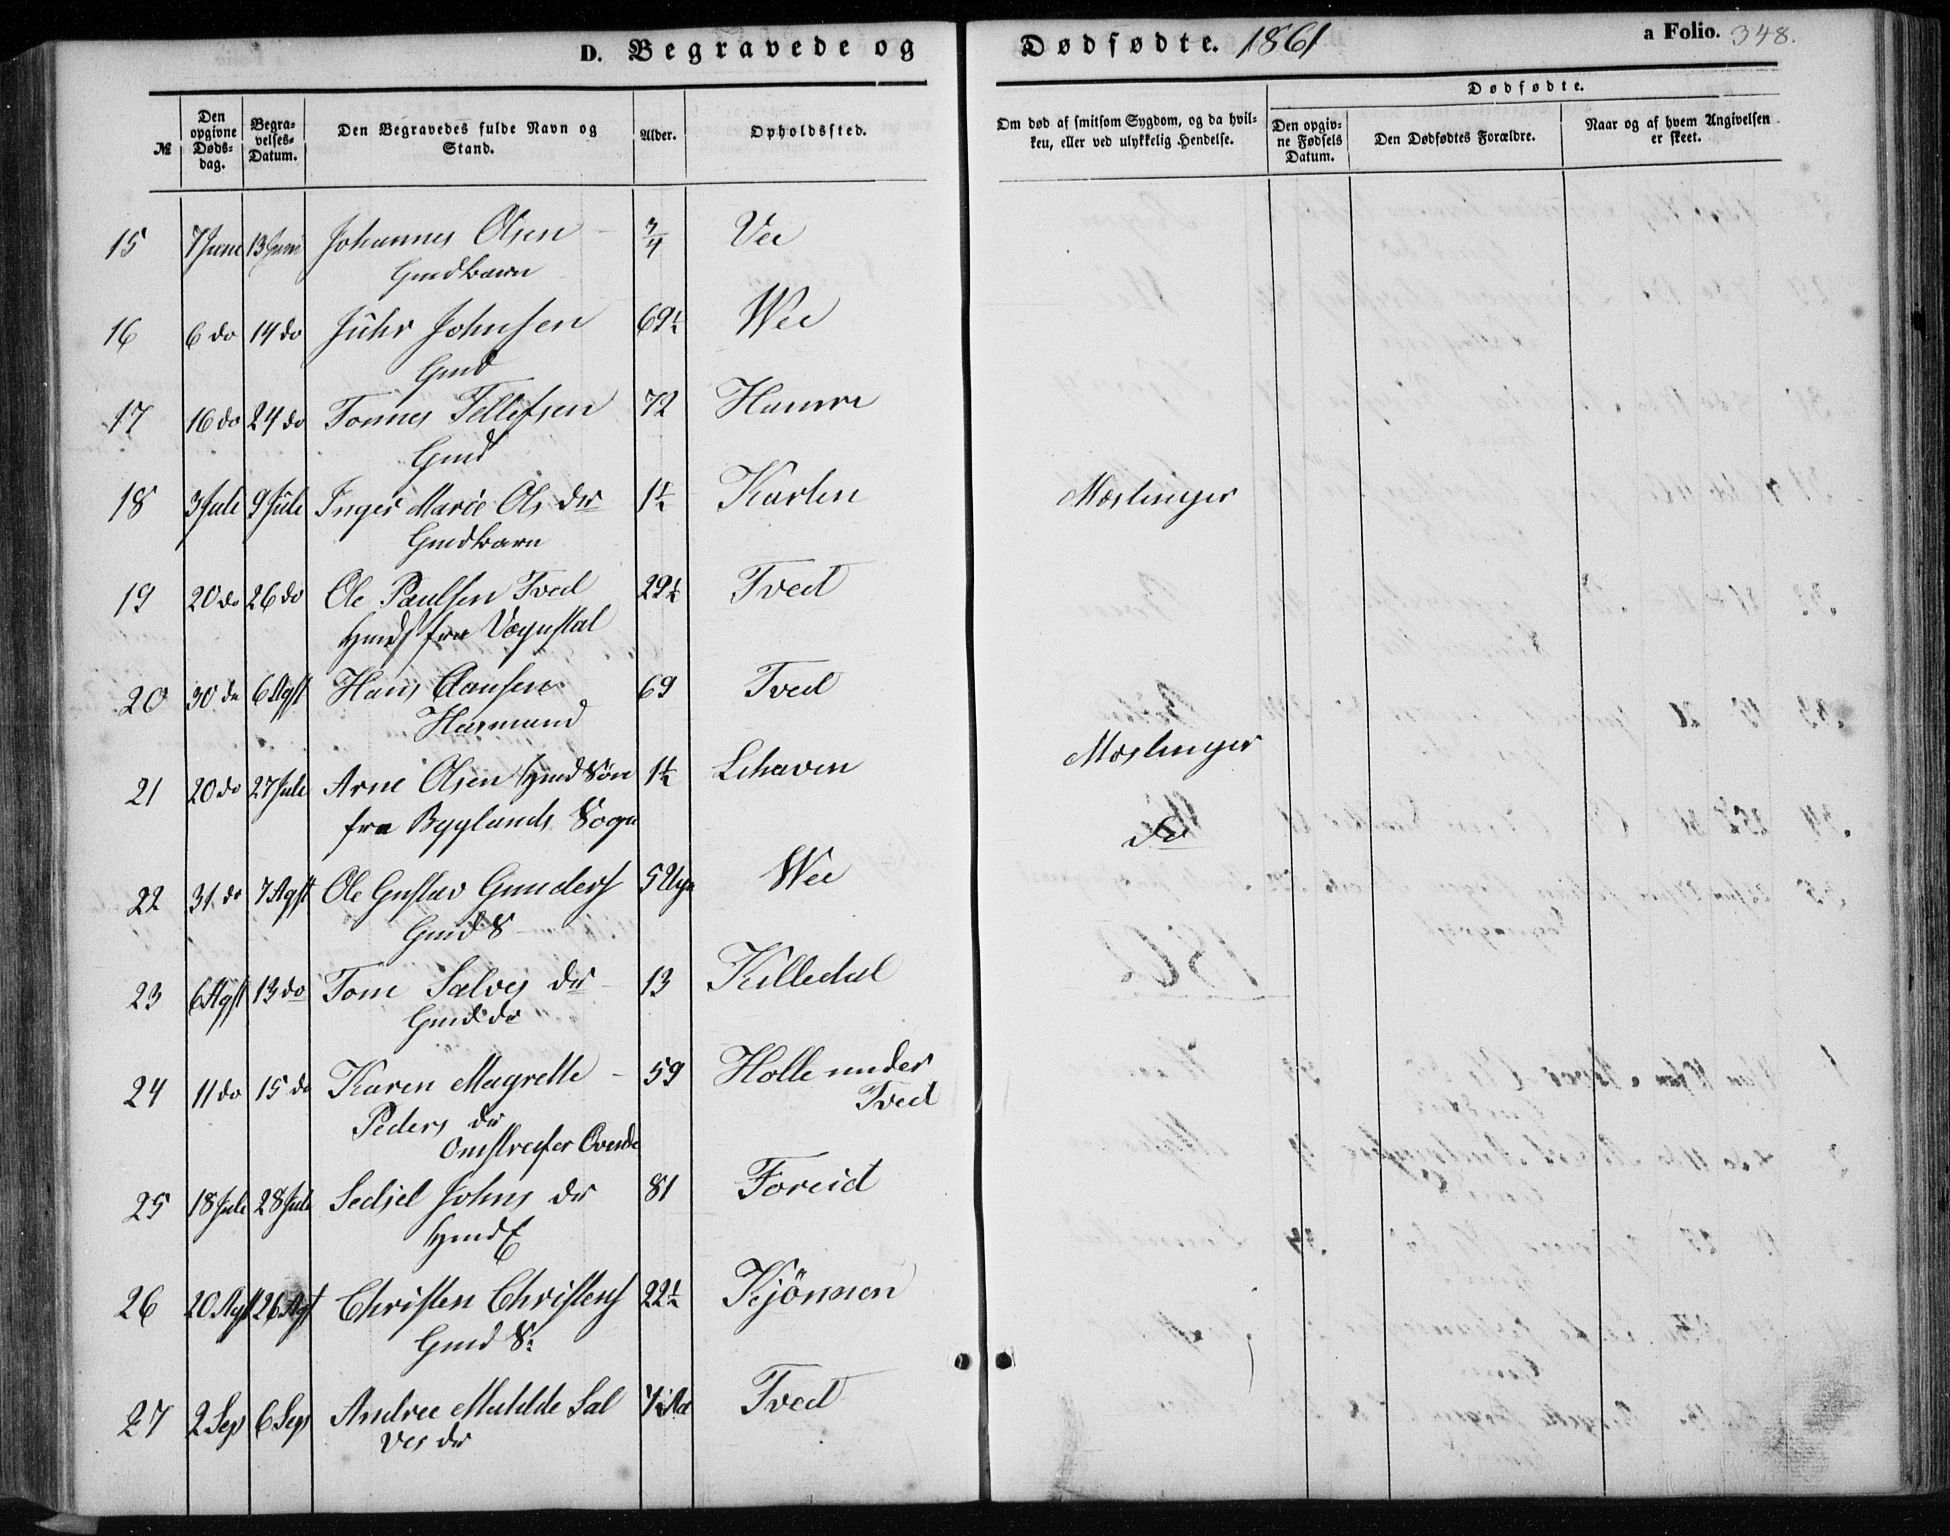 D. Begravede og Dødfødte. 1861
a Folio. 348.
№
Den opgivne Døds-dag.
Begra-velses-Datum.
Den Begravedes fulde Navn og Stand.
Alder.
Opholdssted.
Om død af smitsom Sygdom, og da hvil-ken, eller ved ulykkelig Hendelse.
Dødfødte.
Den opgiv-ne Fødsels Datum.
Den Dødfødtes Forældre.
Naar og af hvem Angivelsen er skeet.
15 7 Juni 13 Juni Johannes Olsen – 3/4 Vee
Gmdbarn
16 6 do 14 do Johnsen 69½ Wee
Gmd
17 16 do 24 do Tonnes Tellefsen 72 Hamre
Gmd
18 3 Juli 9 Juli Inger Marie Ols dr 1½ Karlen Mæslinger
Gmdbarn
19 20 do 26 do Ole Paulsen Tved 29½ Tved
Hmds fra
20 30 do 6 Agst Hans Clausen 69 69 Tved
21 20 do 27 Juli Arne Olsen Hmd Søn 1½ Lehaven Mæslinger
fra Byglands Sogn
do
22 31 do 7 Agst Ole Gustav Gunders 5 Uger Wee
Gmd S
23 6 Agst 13 do Tone Salves dr – 13 Killedal
Gmd dr
24 11 do 15 do Karen Magrette – 59 Holle under
Tved
Peders dr
Omstreifer Qvinde
25 18 Juli 28 Juli Sedsel Johns dr 81 Foreid
Hmd E
26 20 Agst 26 Agst Christen Christens 22½ Kjönnen
Gmd S:
27 2 Sep 6 Sep Andrea Mathilde Sal Tved
ves dr